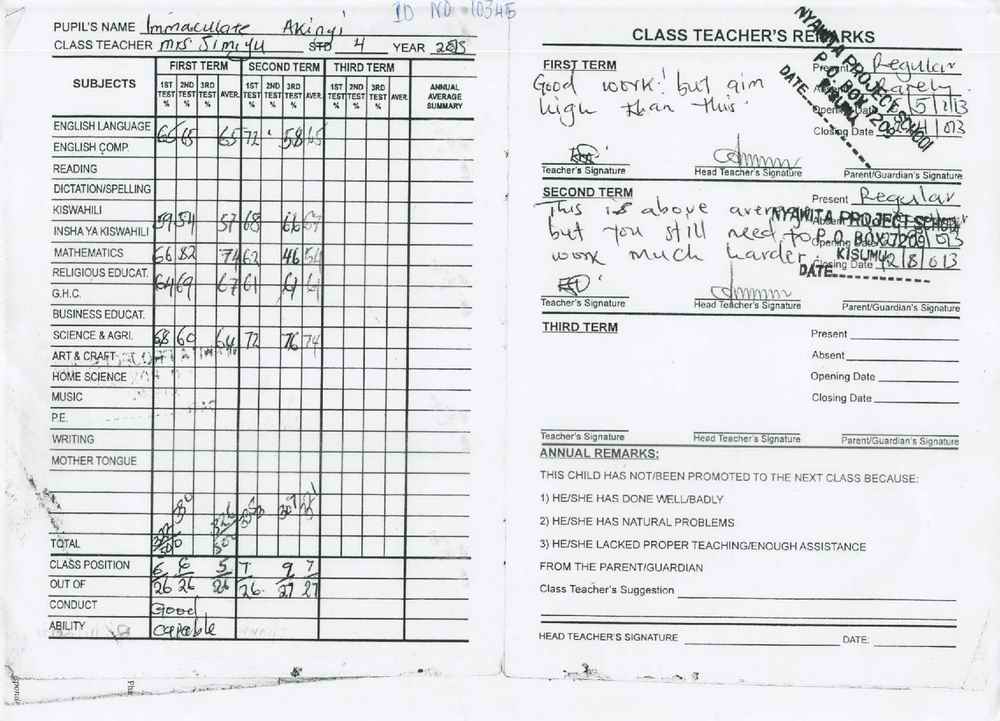 ID NO 10345
PUPIL'S NAME Immaculate Akinyi
CLASS TEACHER Mrs Simiyu STD 4 YEAR 2013
SUBJECTS FIRST TERM SECOND TERM THIRD TERM ANNUAL AVERAGE SUMMARY
1ST TEST % 2ND TEST % 3RD TEST % AVER. 1ST TEST % 2ND TEST % 3RD TEST % AVER. 1ST TEST % 2ND TEST % 3RD TEST % AVER.
ENGLISH LANGUAGE 65 65 65 72 58 65
ENGLISH COMP.
READING
DICTATION/SPELLING
KISWAHILI
INSHA YA KISWAHILI 59 54 57 68 66 67
MATHEMATICS 66 82 74 62 46 54
RELIGIOUS EDUCAT.
G.H.C. 64 69 67 61 61 61
BUSINESS EDUCAT.
SCIENCE & AGRI. 68 60 64 72 76 74
ART & CRAFT
HOME SCIENCE
MUSIC
P.E.
WRITING
MOTHER TONGUE
TOTAL
CLASS POSITION 6 6 5 7 9 7
OUT OF 26 26 26 26 27 27
CONDUCT Good
ABILITY capable
CLASS TEACHER'S REMARKS
NYAWITA PROJECT SCHOOL
P. O. BOX 7209
KISUMU
DATE
FIRST TERM Present Regular
Good work! but aim Rarely
high than this. Opening Date
Closing Date
Teacher's Signature Head Teacher's Signature Parent/Guardian's Signature
SECOND TERM Present Regular
This is above average
but you still need to
work much harder. Closing Date 2/8/013
NYAWITA PROJECT SCHOOL
P. O. BOX 7209
KISUMU
DATE
Teacher's Signature Head Teacher's Signature Parent/Guardian's Signature
THIRD TERM Present
Absent
Opening Date
Closing Date
Teacher's Signature Head Teacher's Signature Parent/Guardian's Signature
ANNUAL REMARKS:
THIS CHILD HAS NOT/BEEN PROMOTED TO THE NEXT CLASS BECAUSE:
1) HE/SHE HAS DONE WELL/BADLY
2) HE/SHE HAS NATURAL PROBLEMS
3) HE/SHE LACKED PROPER TEACHING/ENOUGH ASSISTANCE
FROM THE PARENT/GUARDIAN
Class Teacher's Suggestion
HEAD TEACHER'S SIGNATURE DATE: